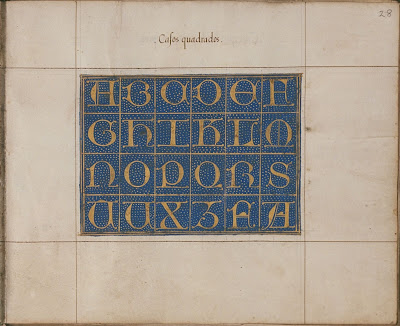 28
. Casos quadrados .
A B C D E F
G H I K L M
N O P Q R S
U X Z A